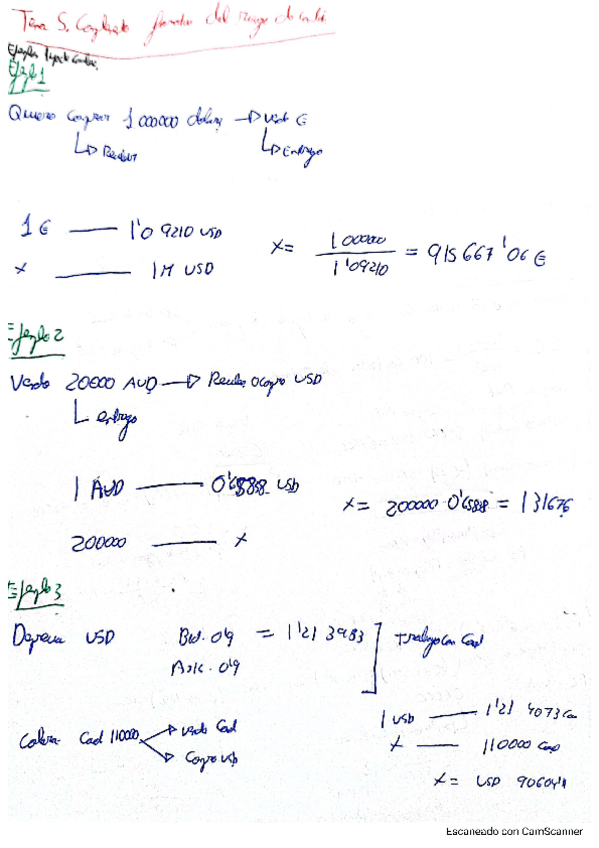 Tema 5. Cobertura del riesgo de cambio
Ejemplos
Ejemplo 1
Quiero comprar 1 000000 dolares → Vendo €
↳ Recibir ↳ Entrego
1 € — 1'0 9210 USD
x — 1M USD
x = 1 00000 / 1'09210 = 915 667'06 €
Ejemplo 2
Vendo 20000 AUD → Recibo o compro USD
↳ entrego
1 AUD — USD
200000 — x
x = 200000 · 0'65838 = 131676
Ejemplo 3
Deprecia USD Bid. 0'9 = 1'21 3983
Ask. 0'9
Trabajo con Cad
Cad 110000 → Vendo Cad
→ Compro USD
1 USD — 1'21 4073 Cad
x — 110000 Cad
x = USD
Escaneado con CamScanner